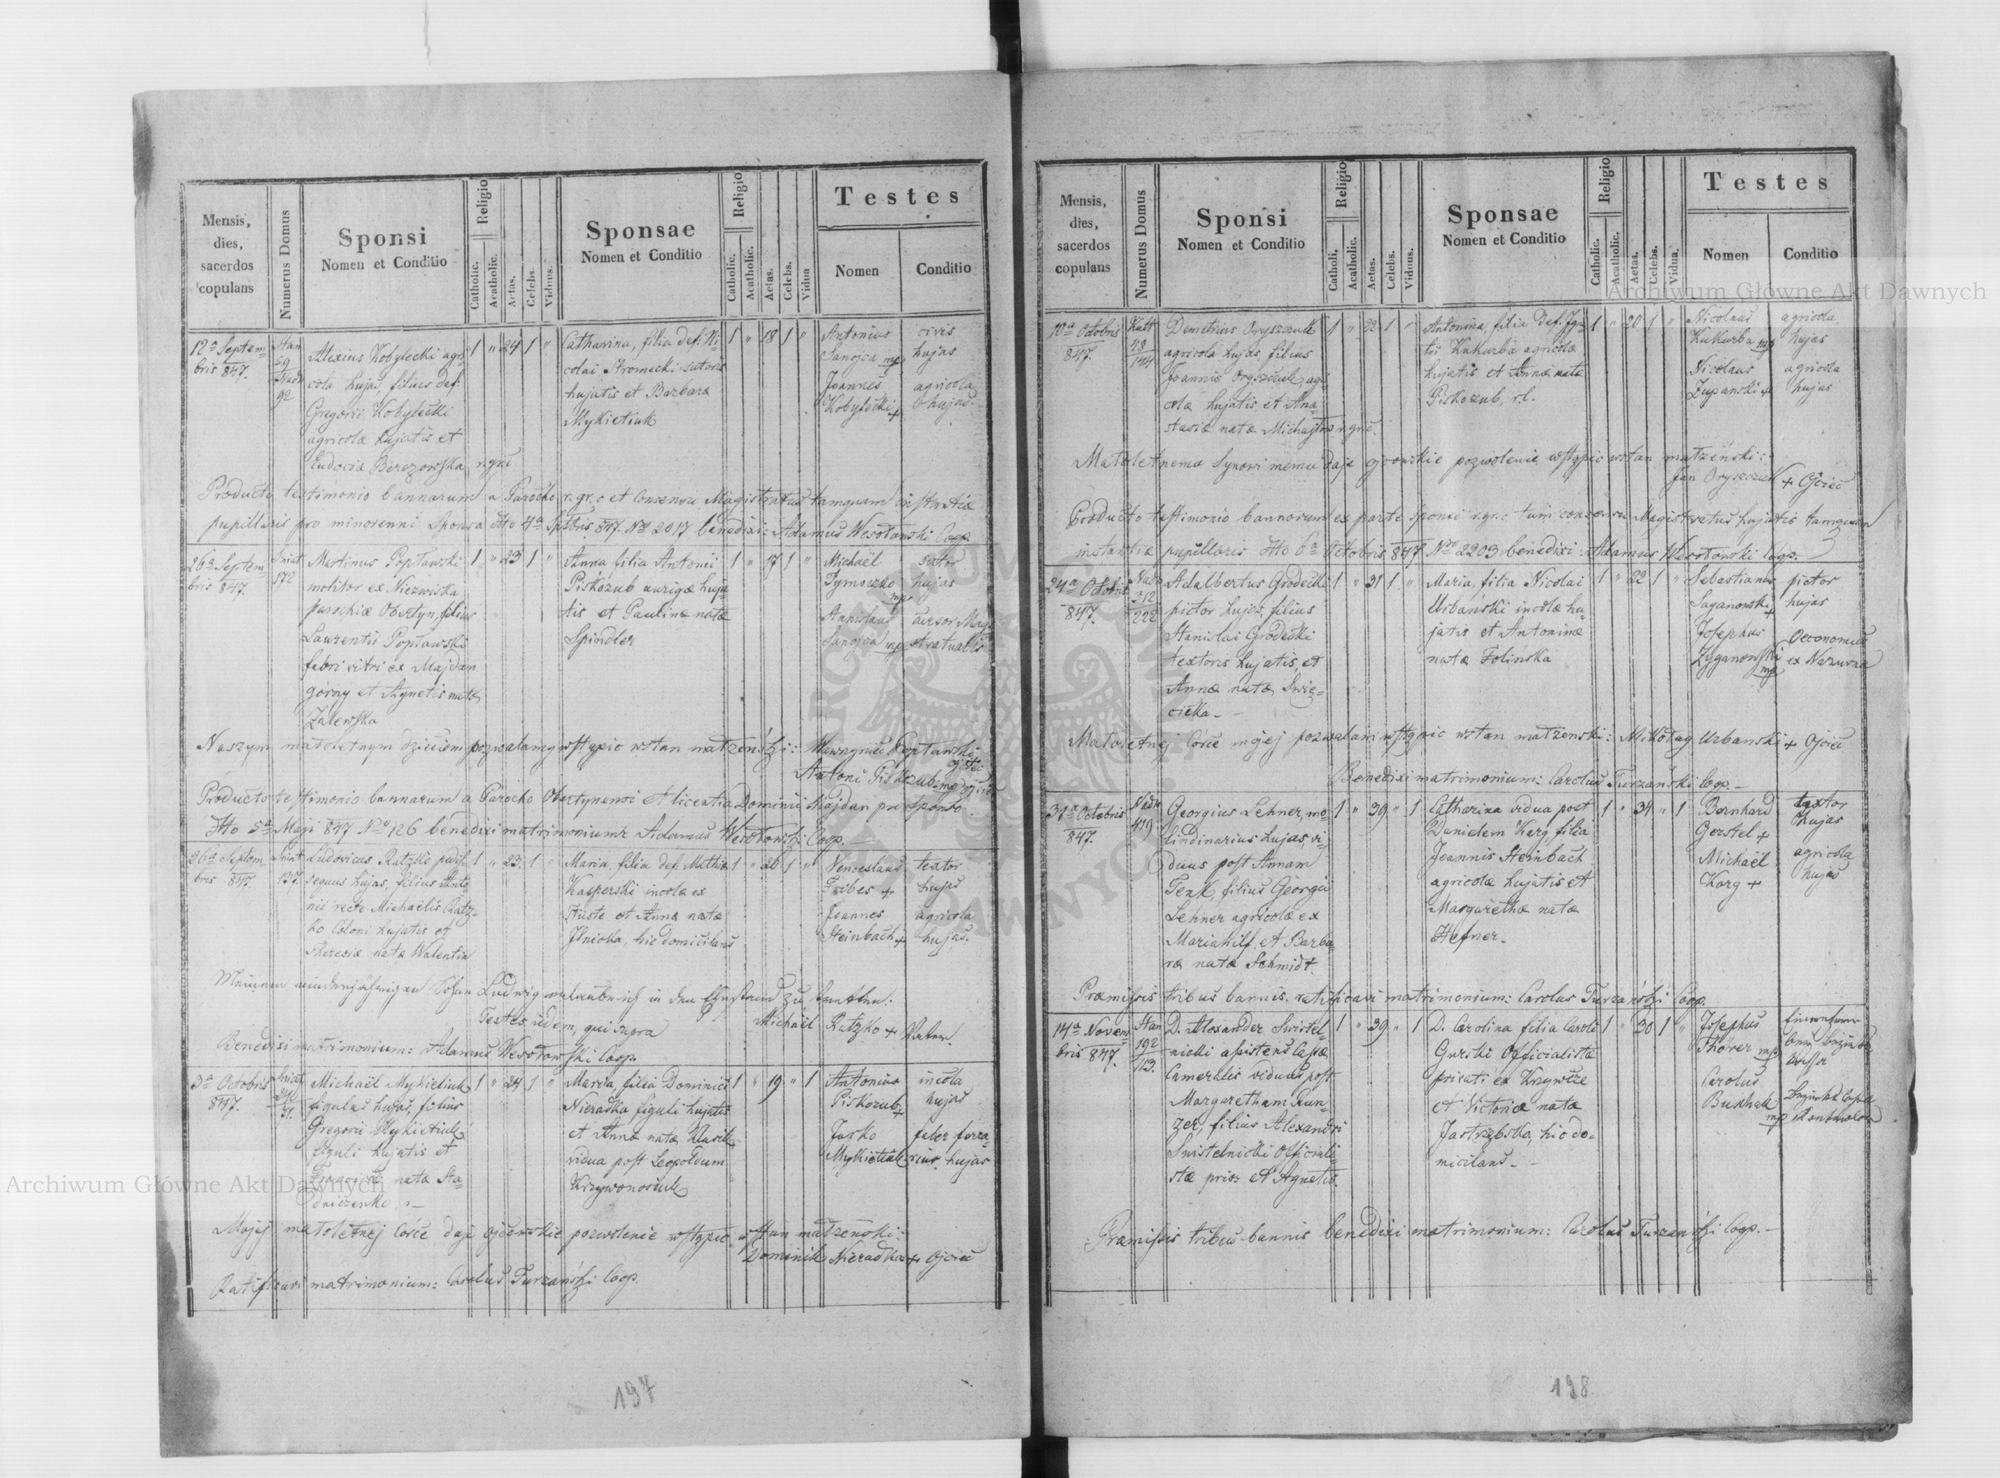 Mensis, dies, sacerdos copulans
Numerus Domus
Sponsi
Nomen et Conditio
Religio
Catholic.
Acatholic.
Aetas.
Celebs.
Viduus.
Sponsae
Nomen et Conditio
Religio
Catholic.
Acatholic.
Aetas.
Celebs.
Vidua
Testes
Nomen
Conditio
12a Septem-
bris 847.
Alexius Kobylecki agri-
cola hujas, filius def.
Gregorii Kobylecki
agricolae hujatis et
Eudociae Berezowska r.gr.c
1 " 24 1 "
Catharina, filia def. Ni-
colai Stromecki sutoris
hujatis et Barbara
Mykietiuk
1 " 18 1 "
Antonius
Sanojca mp
Joannes
Kobylecki +
civis
hujas
agricola
hujas.
Producto testimonio bannorum a Parocho r.gr.c et Consensu Magistratus tamquam instantiae
pupillaris pro minorenni Sponsa dto 4a Septbris 847 No 2017 benedixi: Adamus Wesołowski Coop.
26a Septem-
bris 847.
Martinus Popławski
molitor ex Niezwiska
parochiae Obertyn, filius
Laurentii Popławski
fabri vitri ex Majdan
górny et Agnetis nata
Zalewska
1 " 23 1 "
Anna filia Antonii
Piskozub aurigae huja-
tis et Paulinae natae
Spindler
1 " 17 1 "
Michaël
Tymoszko mp
Sanojca mp
sutor
hujas
Naszym małoletnym dzieciom pozwalamy wstąpic w stan małzeński: Wawrzyniec Popławski
Antoni Piskozub mp ojciec
Producto testimonio bannorum a Parocho Obertynensi et licentia Dominii Majdan pro Sponso
dto 5a Maji 847 No 126 benedixi matrimonium: Adamus Wesołowski Coop.
26a Septem-
bris 847.
137.
Ludovicus Ratzko
hujas, filius
Michaelis Ratz-
ko Coloni hujatis et
Theresiae natae Walentin
1 " 22 1 "
Maria, filia def. Mathiae
Kasperski incolae ex
Uście et Annae natae
Ilnicka, hic domicilans
1 " 26 1 "
Venceslaus
Fribes +
Joannes
Steinbach +
textor
hujas
agricola
hujas.
Meinem minderjährigen Sohne Ludwig erlaube ich in den Ehestand zu tretten:
Michaël Ratzko + Vater.
Testes iidem, qui supra
Benedixi matrimonium: Adamus Wesołowski Coop.
3a Octobris
847.
Michaël Mykietiuk
figulus hujas, filius
Gregorii Mykietiuk
figuli hujatis et
natae Sta-
dniczenko
1 " 24 1 "
Maria, filia Dominici
Nieradka figuli hujatis
et Annae natae Wasik
vidua post Leopoldum
Krzywonosiuk
1 " 19 " 1
Antonius
Piskozub +
Jasko
Mykietiuk
incola
hujas
faber ferra-
rius hujas
Mojej małoletnej Córce daje ojcowskie pozwolenie wstąpic w stan małzeński:
Dominik Nieradka + Ojciec
Ratificavi matrimonium: Carolus Turzański Coop.
197
Mensis, dies, sacerdos copulans
Numerus Domus
Sponsi
Nomen et Conditio
Religio
Catholi.
Acatholic.
Aetas.
Celebs.
Viduus.
Sponsae
Nomen et Conditio
Religio
Catholic.
Acatholic.
Aetas.
Celebs.
Vidua.
Testes
Nomen
Conditio
10a Octobris
847.
Demetrius Oryszczuk
agricola hujas, filius
Joannis Oryszczuk agri-
colae hujatis et Ana-
stasiae natae r.gr.c.
1 " 22 1 "
Antonina, filia def. Igna-
tii Kukurba agricolae
hujatis et Annae natae
Piskozub, r.l.
1 " 20 1 "
Nicolaus
Kukurba mp
Nicolaus
Zupanski +
agricola
hujas
agricola
hujas
Małoletnemu Synowi memu daje ojcowskie pozwolenie wstąpic w stan małzeński:
Jan Oryszczuk + Ojciec
Producto testimonio bannorum ex parte Sponsi r.gr.c tum consensu Magistratus hujatis tamquam
instantiae pupillaris dto 6a Octobris 847 No 2203 benedixi: Adamus Wesołowski Coop.
24a Octobris
847.
312
222
Adalbertus Grodecki
pictor hujas, filius
Stanislai Grodecki
textoris hujatis, et
Annae natae Swię-
cicka.
1 " 31 1 "
Maria, filia Nicolai
Urbański incolae hu-
jatis et Antoninae
natae Folinska
1 " 22 1 "
Sebastianus
Saganowski +
Josephus
Zyganowski mp
pictor
hujas
Oeconomus
ex Nazurna
Małoletnej Córce mojej pozwalam wstąpic w stan małzenski: Mikołay Urbanski + Ojciec
Benedixi matrimonium: Carolus Turzański Coop.
31a Octobris
847.
419
Georgius Lehner, mo-
lindinarius hujas, vi-
duus post Annam
Fenk, filius Georgii
Lehner agricolae ex
Mariahilf, et Barba-
rae natae Schmidt.
1 " 39 " 1
Catharina vidua post
Danielem Kerg, filia
Joannis Steinbach
agricolae hujatis et
Margarethae natae
Hefner.
1 " 34 " 1
Bernhard
Gerstel +
Michaël
Karg +
textor
hujas
agricola
hujas
Praemissis tribus bannis ratificavi matrimonium: Carolus Turzański Coop.
14a Novem-
bris 847.
192
113.
D. Alexander Swistel-
nicki assistens Cassae
Cameralis viduus post
Margaretham Kun-
zer, filius Alexandri
Swistelnicki Officiali-
stae priv. et Agnetis.
1 " 39 " 1
D. Carolina filia Caroli
Gurski Officialistae
privati ex Krzywcze
et Victoriae natae
Jastrzębska, hic do-
micilans.
1 " 30 1 "
Josephus
Thorer mp
Carolus
mp
Praemissis tribus bannis benedixi matrimonium: Carolus Turzański Coop.
198
Archiwum Główne Akt Dawnych
Archiwum Główne Akt Dawnych